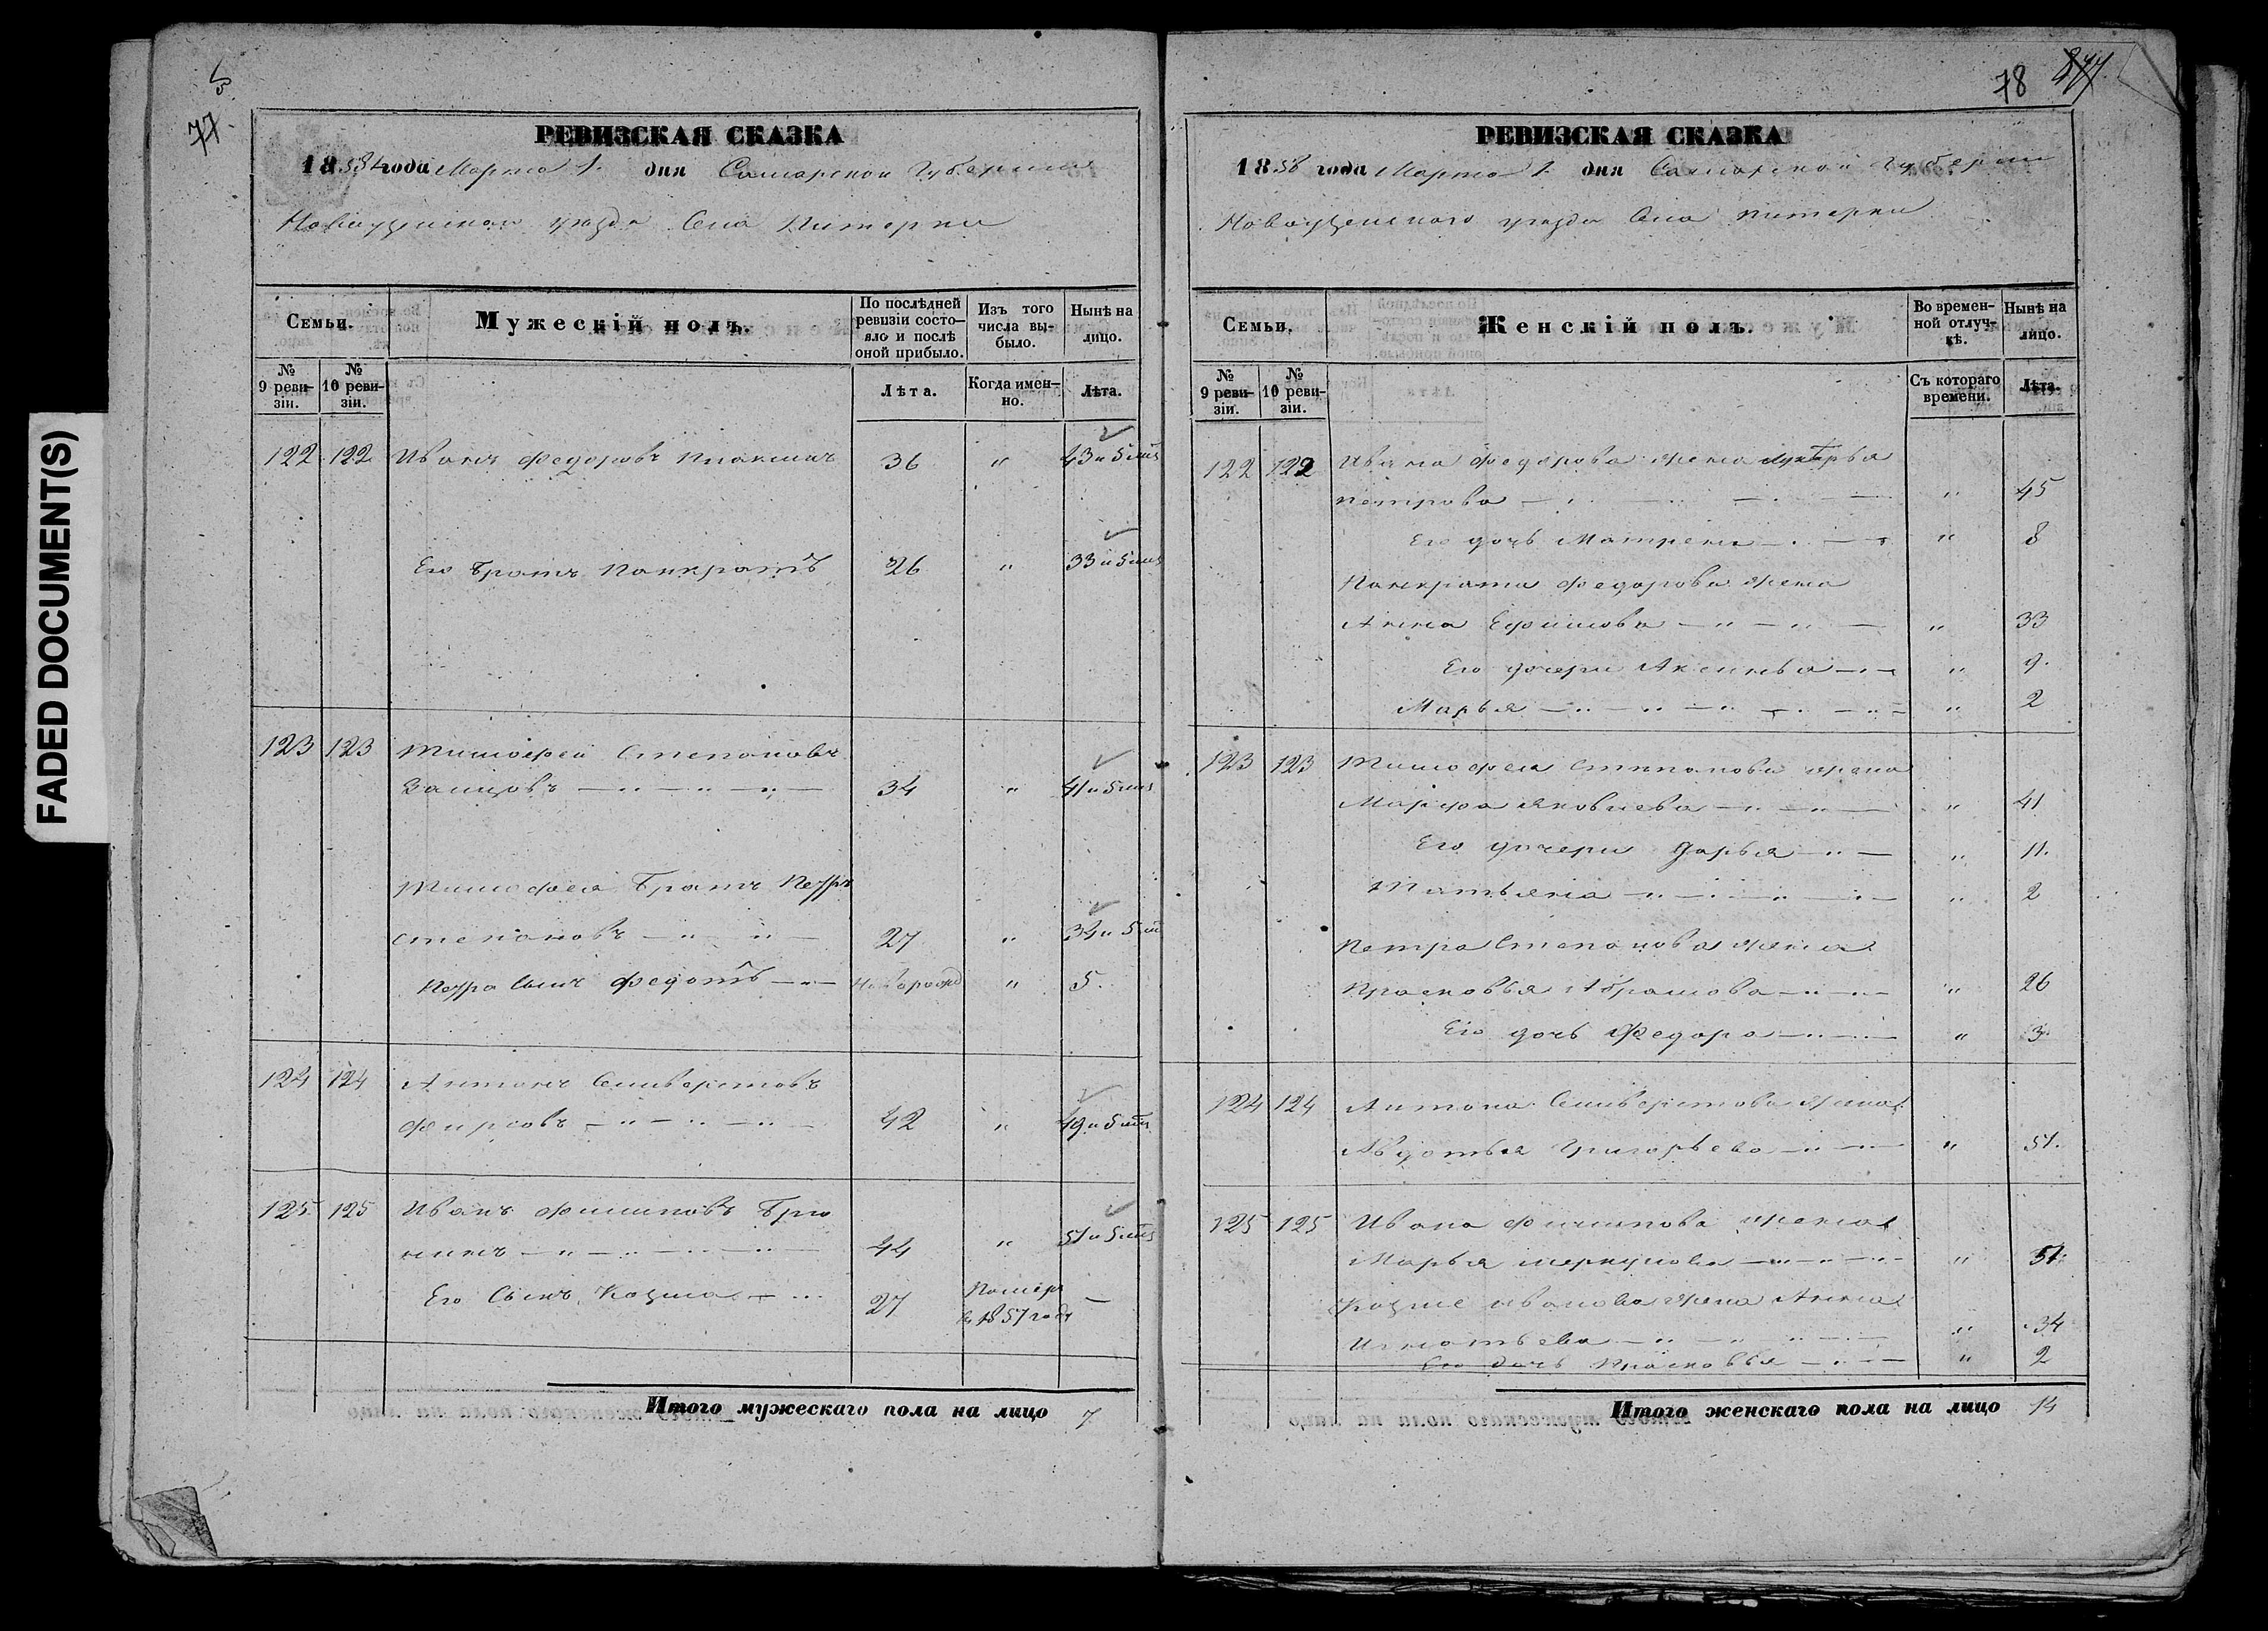 FADED DOCUMENT(S)
77.
РЕВИЗСКАЯ СКАЗКА
1858 года Марта 1. дня Самарской Губернии
Новоузенского уезда Села Питерки
Семьи.
Мужескій полъ.
По послѣдней ревизіи состо-яло и послѣ оной прибыло.
Изъ того числа вы-было.
Нынѣ на лицо.
№ 9 реви-зіи.
№ 10 реви-зіи.
Лѣта.
Когда имен-но.
Лѣта.
122 122 Иванъ Федоровъ 36 " 43 и 5 мѣс
Его Братъ Панкратъ 26 " 33 и 5 мѣс
123 123 Тимофей Степановъ
34 " 41 и 5 мѣс
Тимофея Братъ Петръ
Степановъ 27 " 34 и 5 мѣс
Петра Сынъ Федотъ Новорожд " 5.
124 124 Антонъ Селиверстовъ
Фирсовъ 42 " 49 и 5 мѣс
125 125 Иванъ Филиповъ Брю
нинъ 44 " 51 и 5 мѣс
Его Сынъ Козма 27 Померъ —
въ 1857 годѣ
Итого мужескаго пола на лицо 7
78
РЕВИЗСКАЯ СКАЗКА
1858 года Марта 1. дня Самарской Губерніи
Новоузенского уезда Села Питерки
Семьи.
Женскій полъ.
Во времен-ной отлуч-кѣ.
Нынѣ на лицо.
№ 9 реви-зіи.
№ 10 реви-зіи.
Съ котораго времени.
Лѣта.
122 122 Ивана Федорова жена
Петрова " 45
Его дочь Матрена " 8
Панкрата Федорова жена
Анна Ефимова " 33
Его дочери Аксинья " 9.
Марья " 2
123 123 Тимофея Степанова жена
Марфа Яковлева " 41
Его дочери Дарья " 11.
Татьяна " 2
Петра Степанова жена
Прасковья Абрамова " 26
Его дочь Федора " 3.
124 124 Антона Селиверстова жена
Авдотья Григорьева " 51.
125 125 Ивана Филипова жена
Марья Меркулова " 51.
Козме Иванова жена Анна
Игнатьева " 34
Его дочь Прасковья " 2
Итого женскаго пола на лицо 14